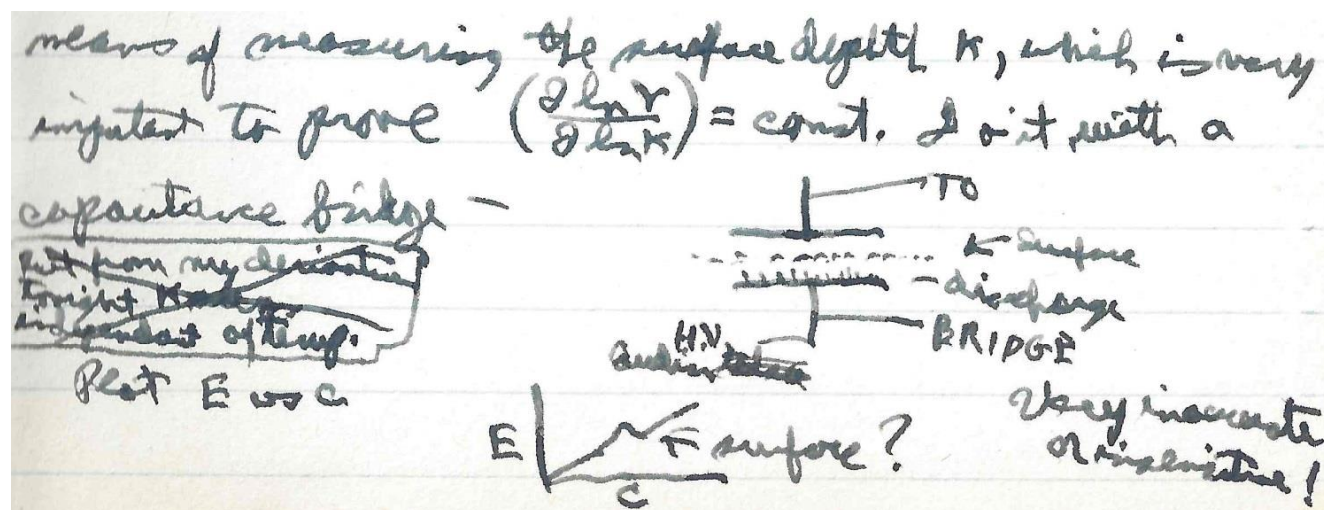 means of measuring the surface depth K, which is very
important to prove (∂ ln γ / ∂ ln K) = const. Do it with a
capacitance bridge –
But from my derivation
tonight K
independent of temp.
Plot E vs C
TO
← surface
– discharge
BRIDGE
HV
E
C
← surface?
Very inaccurate
or insensitive!